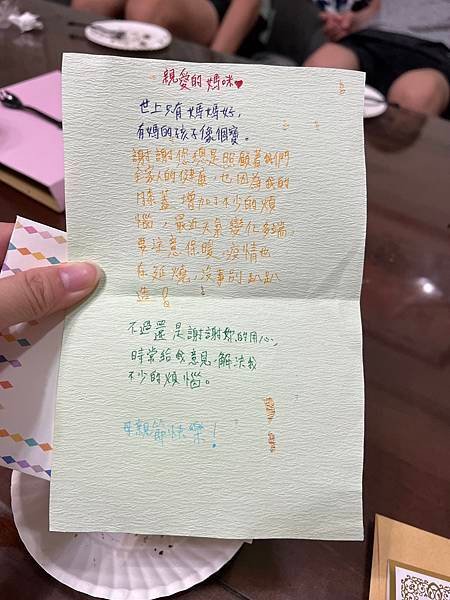 親愛的媽咪♥
世上只有媽媽好,
有媽的孩子像個寶。
謝謝您總是照顧著我們
全家人的健康,也因為我的
膝蓋,增加了不少的煩
惱,最近天氣變化多端,
要注意保暖,疫情也
在延燒,沒事別趴趴
造
不過還是謝謝妳的用心,
時常給我意見,解決我
不少的煩惱。
母親節快樂!